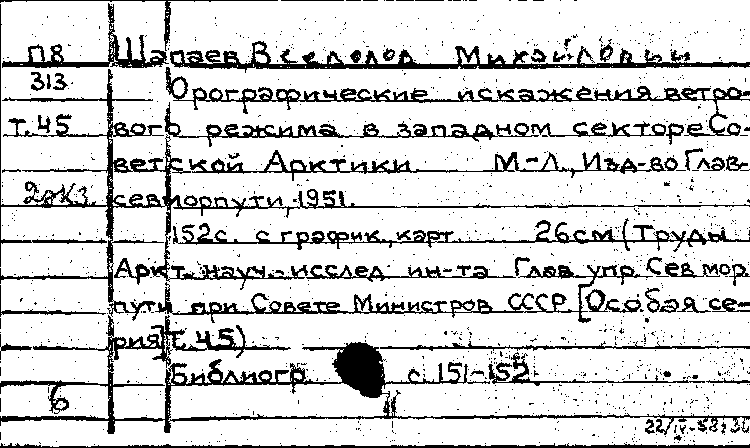 П8 Шапаев Всеволод Михайлович
313 Орографические искажения ветро-
т.45 вого режима в западном секторе Со-
ветской Арктики М-Л., Изд-во Глав-
2экз. севморпути, 1951.
152с. с график., карт. 26см (Труды
Аркт. науч.-исслед ин-та Глав упр. Сев мор.
пути при Совете Министров СССР. [Особая се-
рия] т.45)
Библиогр с. 151-152.
6
22/IV-53г.